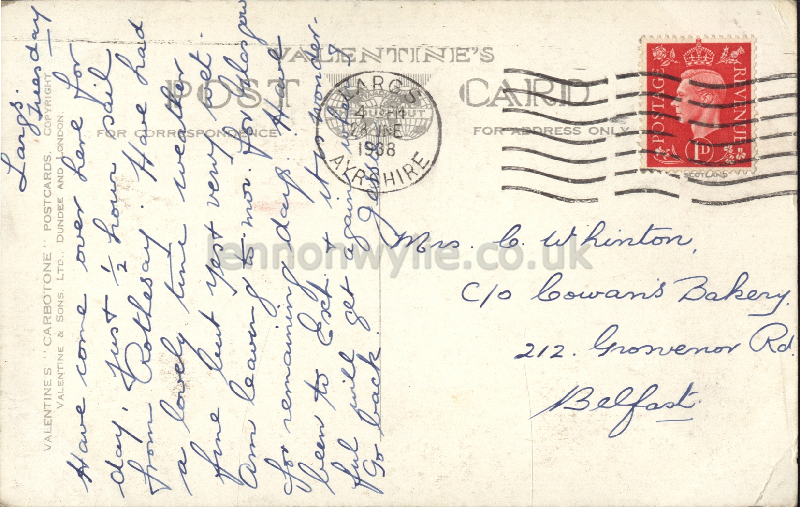 VALENTINE'S
POST CARD
FOR CORRESPONDENCE
FOR ADDRESS ONLY
LARGS
AYRSHIRE
1938
POSTAGE
REVENUE
1D
SCOTLAND
VALENTINE'S "CARBOTONE" POSTCARDS. COPYRIGHT
VALENTINE & SONS LTD., DUNDEE AND LONDON.
Largs.
Tuesday
Have come over here for
day, just ½ hour sail
from Rothesay. Have had
a lovely time weather
fine but yest very wet.
Am leaving to-mor. for Glasgow
for remaining days. Have
been to Ext. & it is wonder-
ful will get again when I
go back.
Mrs. C. Whinton,
C/o Cowan's Bakery.
212. Grosvenor Rd.
Belfast.
lennonwylie.co.uk